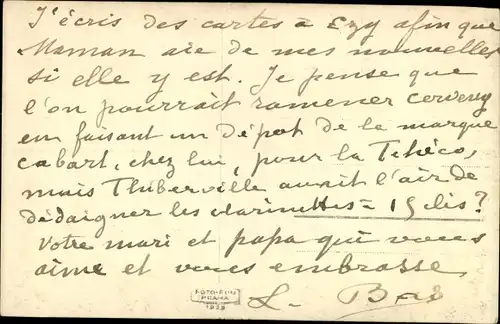 J'écris des cartes à Ezy afin que
Maman aie de mes nouvelles
si elle y est. Je pense que
l'on pourrait ramener Cerveny
en faisant un dépot de la marque
Cabart, chez lui, pour la Tchéco,
mais Thiberville aurait l'air de
dédaigner les clarinettes = 15 clis?
Votre mari et papa qui vous
aime et vous embrasse
L. Bas
FOTO-FON
PRAHA
1929